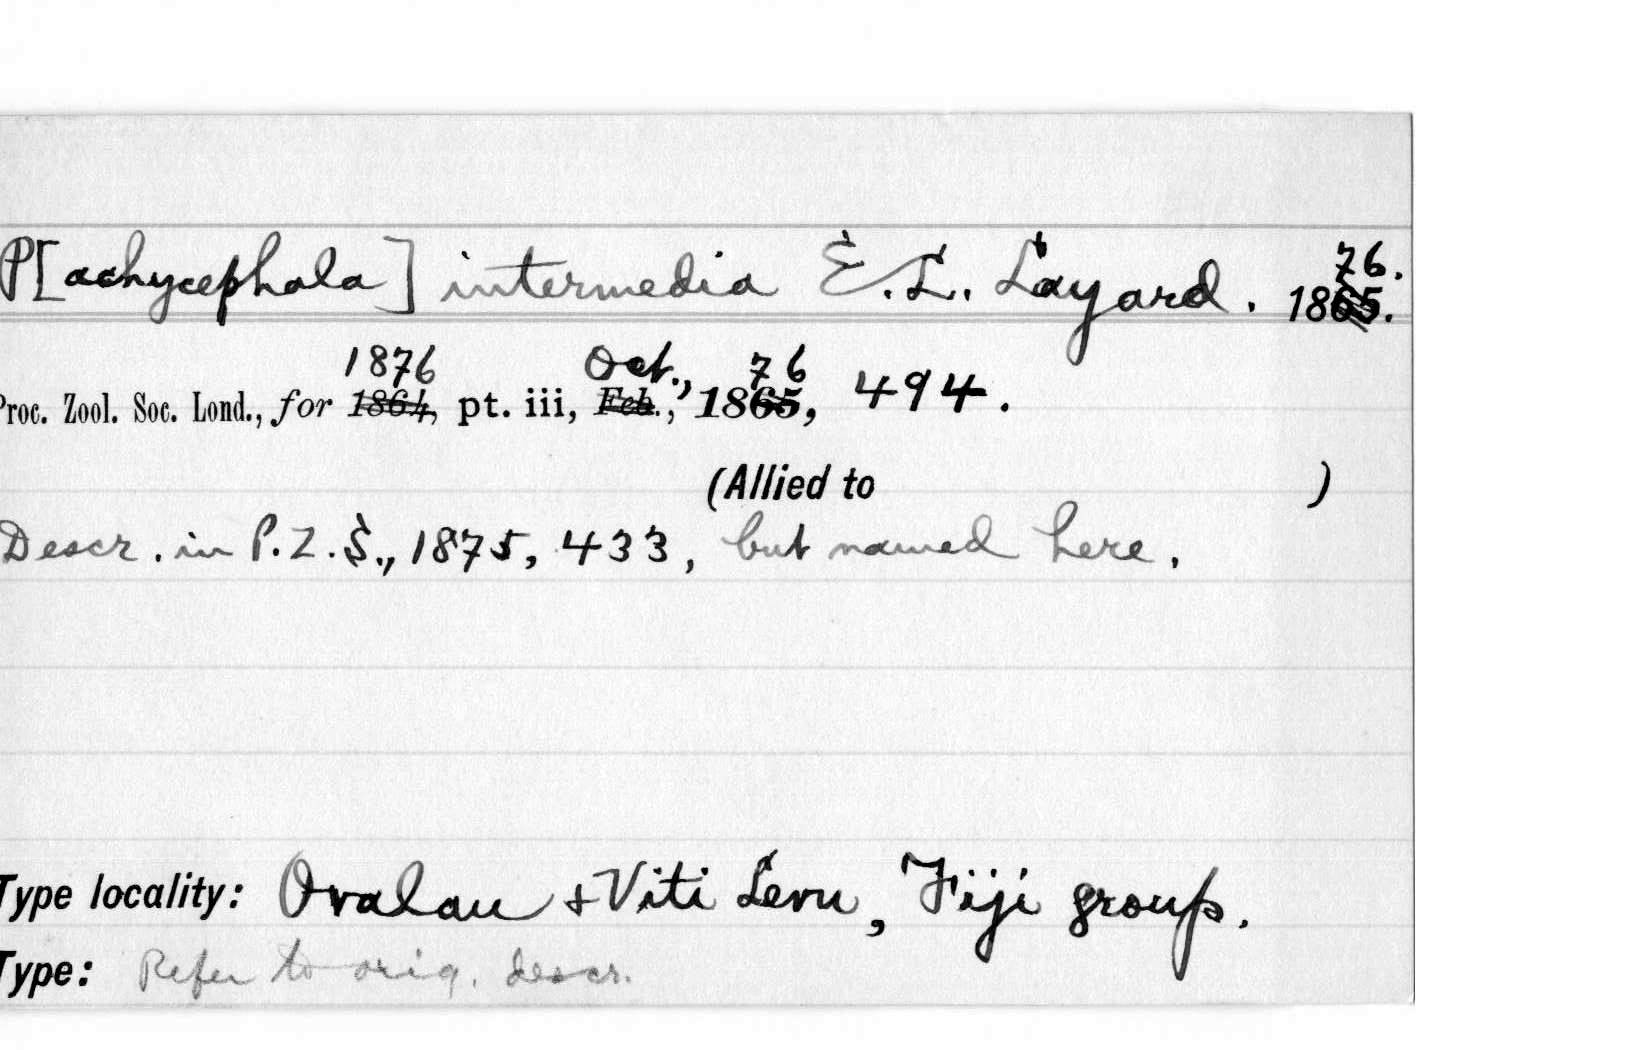 P[achycephala] intermedia E. L. Layard. 1865. 76.
Proc. Zool. Soc. Lond., for 1864, 1876 pt. iii, Feb., Oct., 1865, 76 494.
(Allied to )
Descr. in P. Z. S., 1875, 433, but named here.
Type locality: Ovalau & Viti Levu, Fiji group.
Type: Refer to orig. descr.